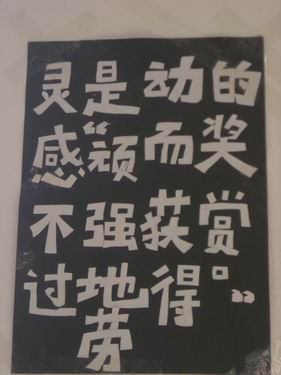 灵感不过
是“顽强地劳
动而获得
的奖赏。”